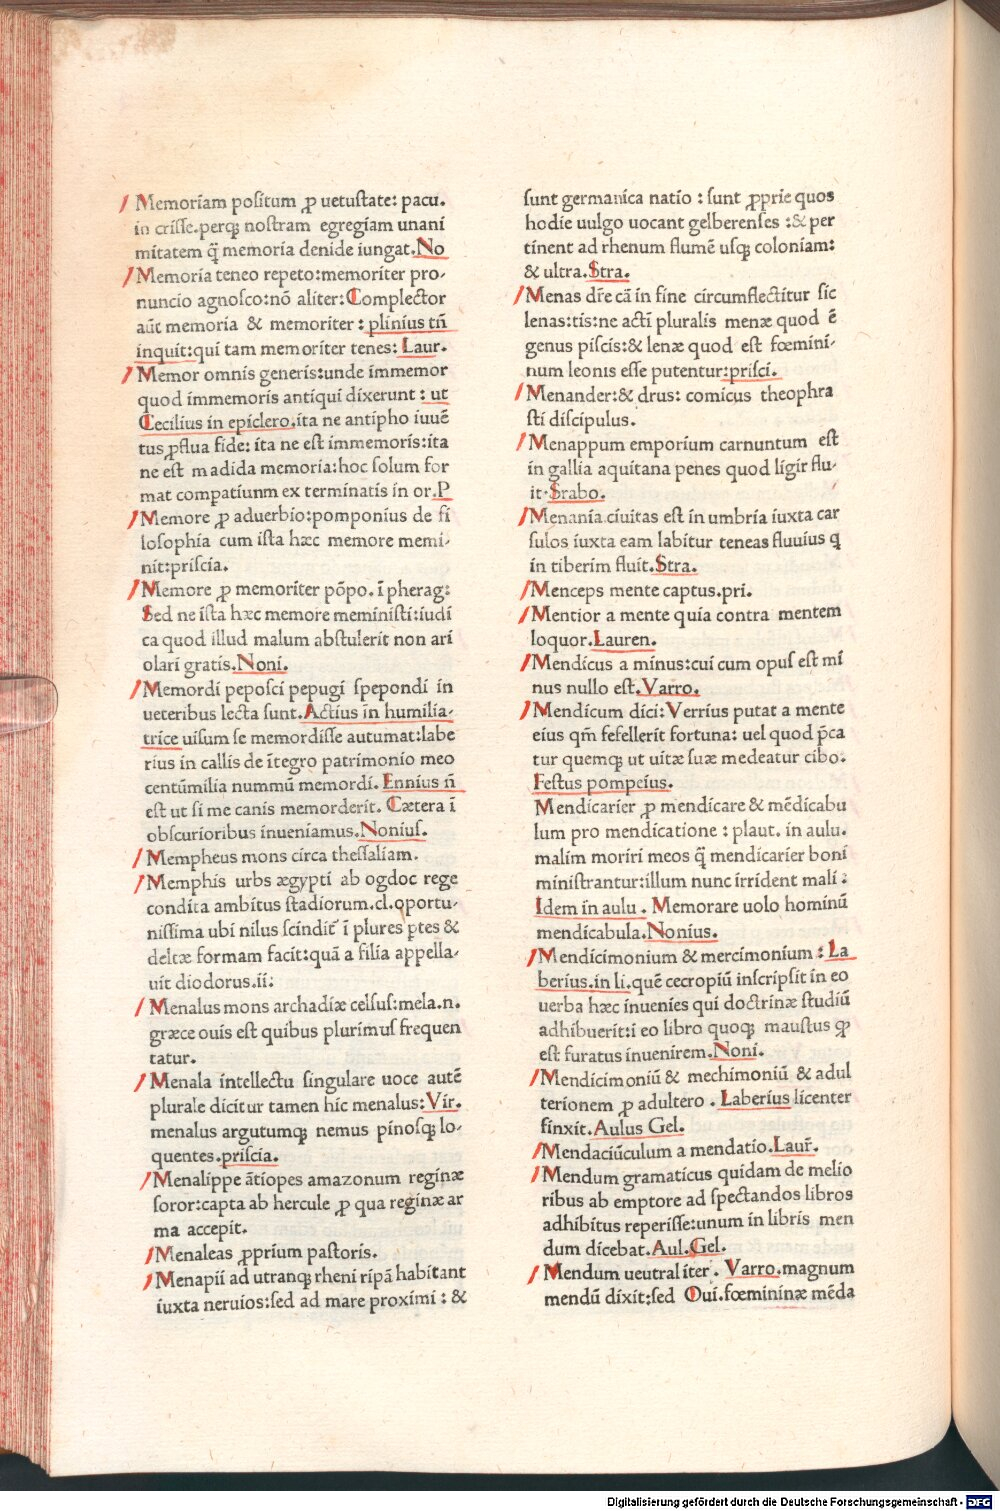 Memoriam positum ꝓ uetustate: pacu.
in crisse.perqꝫ nostram egregiam unani
mitatem q̄ memoria denide iungat.No
Memoria teneo repeto:memoriter pro-
nuncio agnosco:nō aliter:Complector
aūt memoria & memoriter : plinius tn̄
inquit:qui tam memoriter tenes: Laur.
Memor omnis generis:unde immemor
quod immemoris antiqui dixerunt : ut
Cecilius in epiclero.ita ne antipho iuuē
tus ꝓflua fide: ita ne est immemoris:ita
ne est madida memoria:hoc solum for
mat compatiunm ex terminatis in or.P
Memore ꝓ aduerbio:pomponius de fi
losophia cum ista hæc memore memi-
nit:priscia.
Memore ꝓ memoriter pōpo. ī pherag:
Sed ne ista hæc memore meministi:iudi
ca quod illud malum abstulerit non ari
olari gratis.Noni.
Memordi peposci pepugi spepondi in
ueteribus lecta sunt.Actius in humilia-
trice uisum se memordisse autumat:labe
rius in callis de ītegro patrimonio meo
centūmilia nummū memordi. Ennius n̄
est ut si me canis memorderit. Cætera ī
obscurioribus inueniamus.Nonius.
Mempheus mons circa thessaliam.
Memphis urbs ægypti ab ogdoc rege
condita ambitus stadiorum.cl.oportu-
nissima ubi nilus scindit̄ ī plures ꝑtes &
deltæ formam facit:quā a filia appella-
uit diodorus.ii:
Menalus mons archadiæ celsus:mela.n.
græce ouis est quibus plurimus frequen
tatur.
Menala intellectu singulare uoce autē
plurale dicitur tamen hic menalus:Vir.
menalus argutumqꝫ nemus pinosqꝫ lo-
quentes.priscia.
Menalippe ātiopes amazonum reginæ
soror:capta ab hercule ꝓ qua reginæ ar
ma accepit.
Menaleas ꝓprium pastoris.
Menapii ad utranqꝫ rheni ripā habitant
iuxta neruios:sed ad mare proximi : &
sunt germanica natio : sunt ꝓprie quos
hodie uulgo uocant gelberenses :& per
tinent ad rhenum flumē usqꝫ coloniam:
& ultra.Stra.
Menas dr̄e cā in fine circumflectitur sic
lenas:tis:ne actī pluralis menæ quod ē
genus piscis:& lenæ quod est fœmini-
num leonis esse putentur:prisci.
Menander:& drus: comicus theophra
sti discipulus.
Menappum emporium carnuntum est
in gallia aquitana penes quod ligir flu-
it.Srabo.
Menania ciuitas est in umbria iuxta car
sulos iuxta eam labitur teneas fluuius q̄
in tiberim fluit.Stra.
Menceps mente captus.pri.
Mentior a mente quia contra mentem
loquor.Lauren.
Mendicus a minus:cui cum opus est mi
nus nullo est.Varro.
Mendicum dici:Verrius putat a mente
eius qm̄ fefellerit fortuna: uel quod p̄ca
tur quemqꝫ ut uitæ suæ medeatur cibo:
Festus pompeius.
Mendicarier ꝓ mendicare & mēdicabu
lum pro mendicatione : plaut. in aulu.
malim moriri meos q̄ mendicarier boni
ministrantur:illum nunc irrident mali :
Idem in aulu . Memorare uolo hominū
mendicabula.Nonius.
Mendicimonium & mercimonium : La
berius.in li.quē cecropiū inscripsit in eo
uerba hæc inuenies qui doctrinæ studiū
adhibuerit:i eo libro quoqꝫ maustus ꝙ
est furatus inuenirem.Noni.
Mendicimoniū & mechimoniū & adul
terionem ꝓ adultero . Laberius licenter
finxit.Aulus Gel.
Mendaciūculum a mendatio.Laur̄.
Mendum gramaticus quidam de melio
ribus ab emptore ad spectandos libros
adhibitus reperisse:unum in libris men
dum dicebat.Aul.Gel.
Mendum ueutraliter . Varro.magnum
mendū dixit:sed Oui.fœmininæ mēda
Digitalisierung gefördert durch die Deutsche Forschungsgemeinschaft - DFG